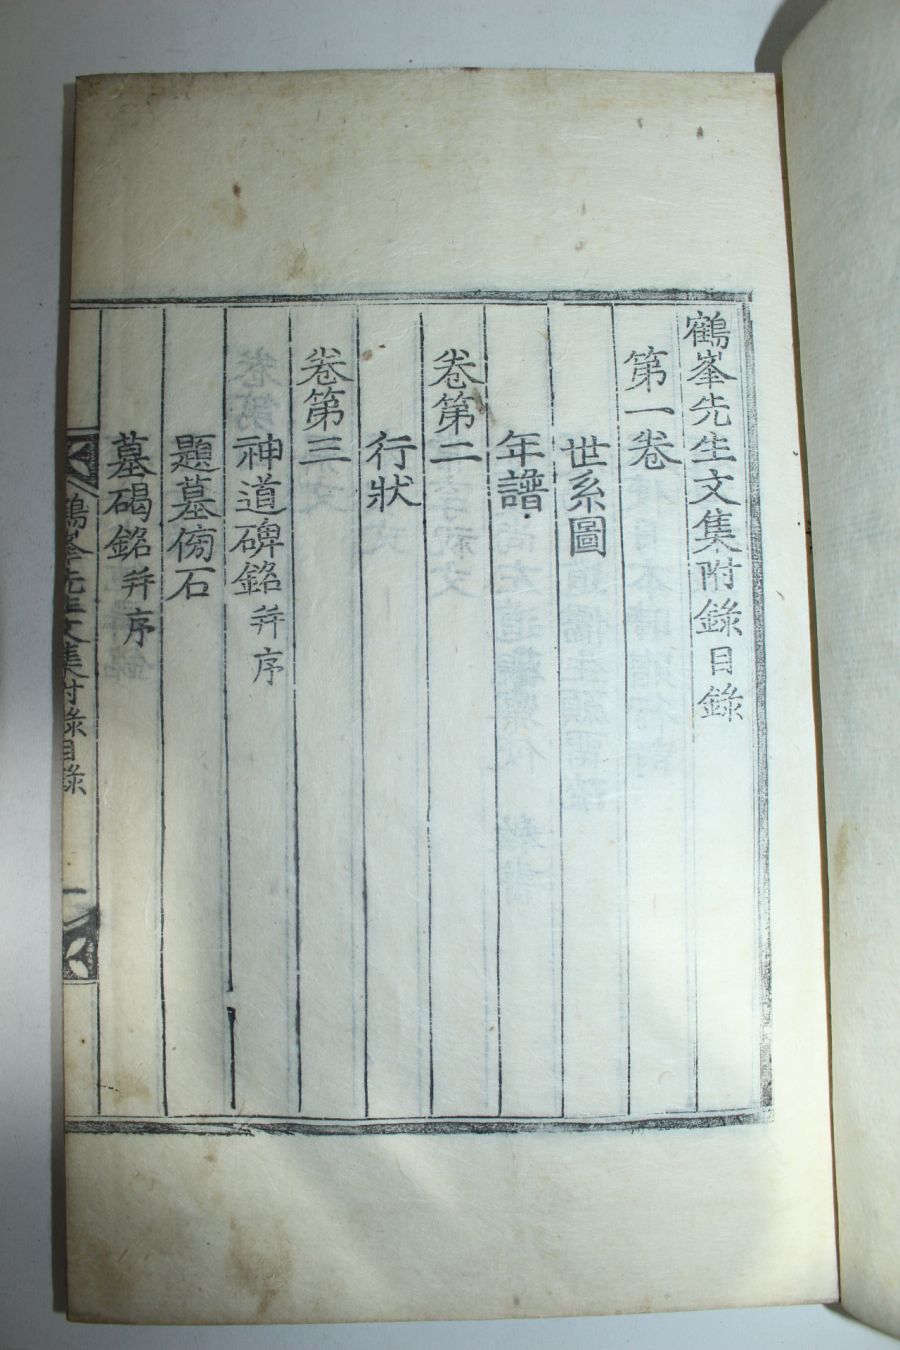 鶴峯先生文集附錄目錄
第一卷
世系圖
年譜
卷第二
行狀
卷第三
神道碑銘 并序
題墓傍石
墓碣銘 并序
鶴峯先生文集附錄目錄 一